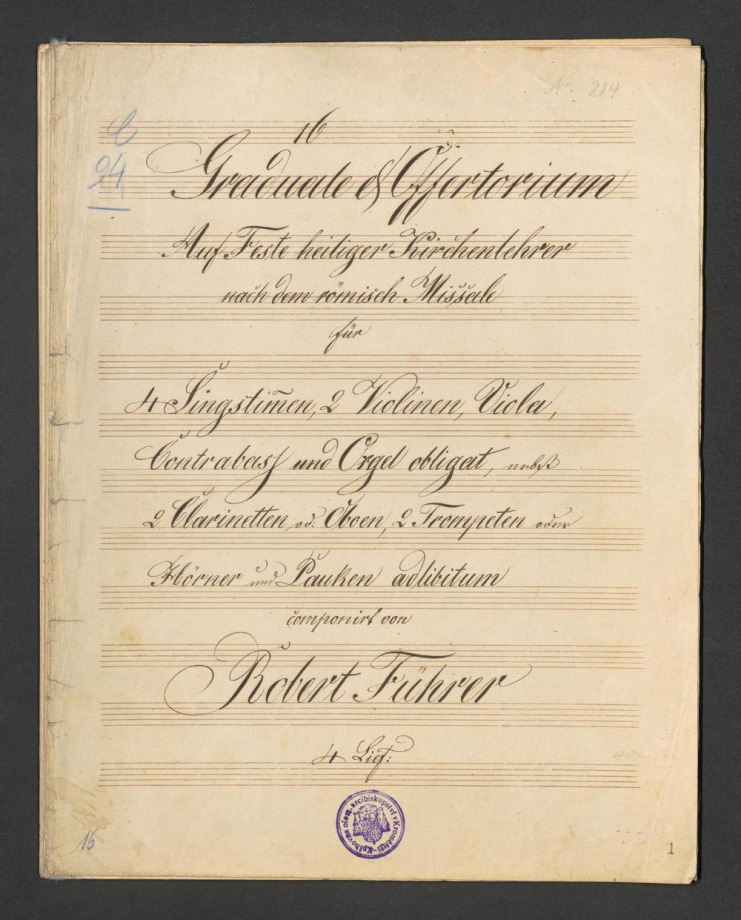 No. 214
C
94
16
Graduale & Offertorium
Auf Feste heiliger Kirchenlehrer
nach dem römisch Missale
für
4 Singstim̄en, 2 Violinen, Viola,
Contrabass und Orgel obligat, nebst
2 Clarinetten od: Oboen, 2 Trompeten oder
Hörner und Pauken adlibitum
componirt von
Robert Führer
4 Lief:
Knihovna olom. arcibiskupství v Kroměříži
16
1